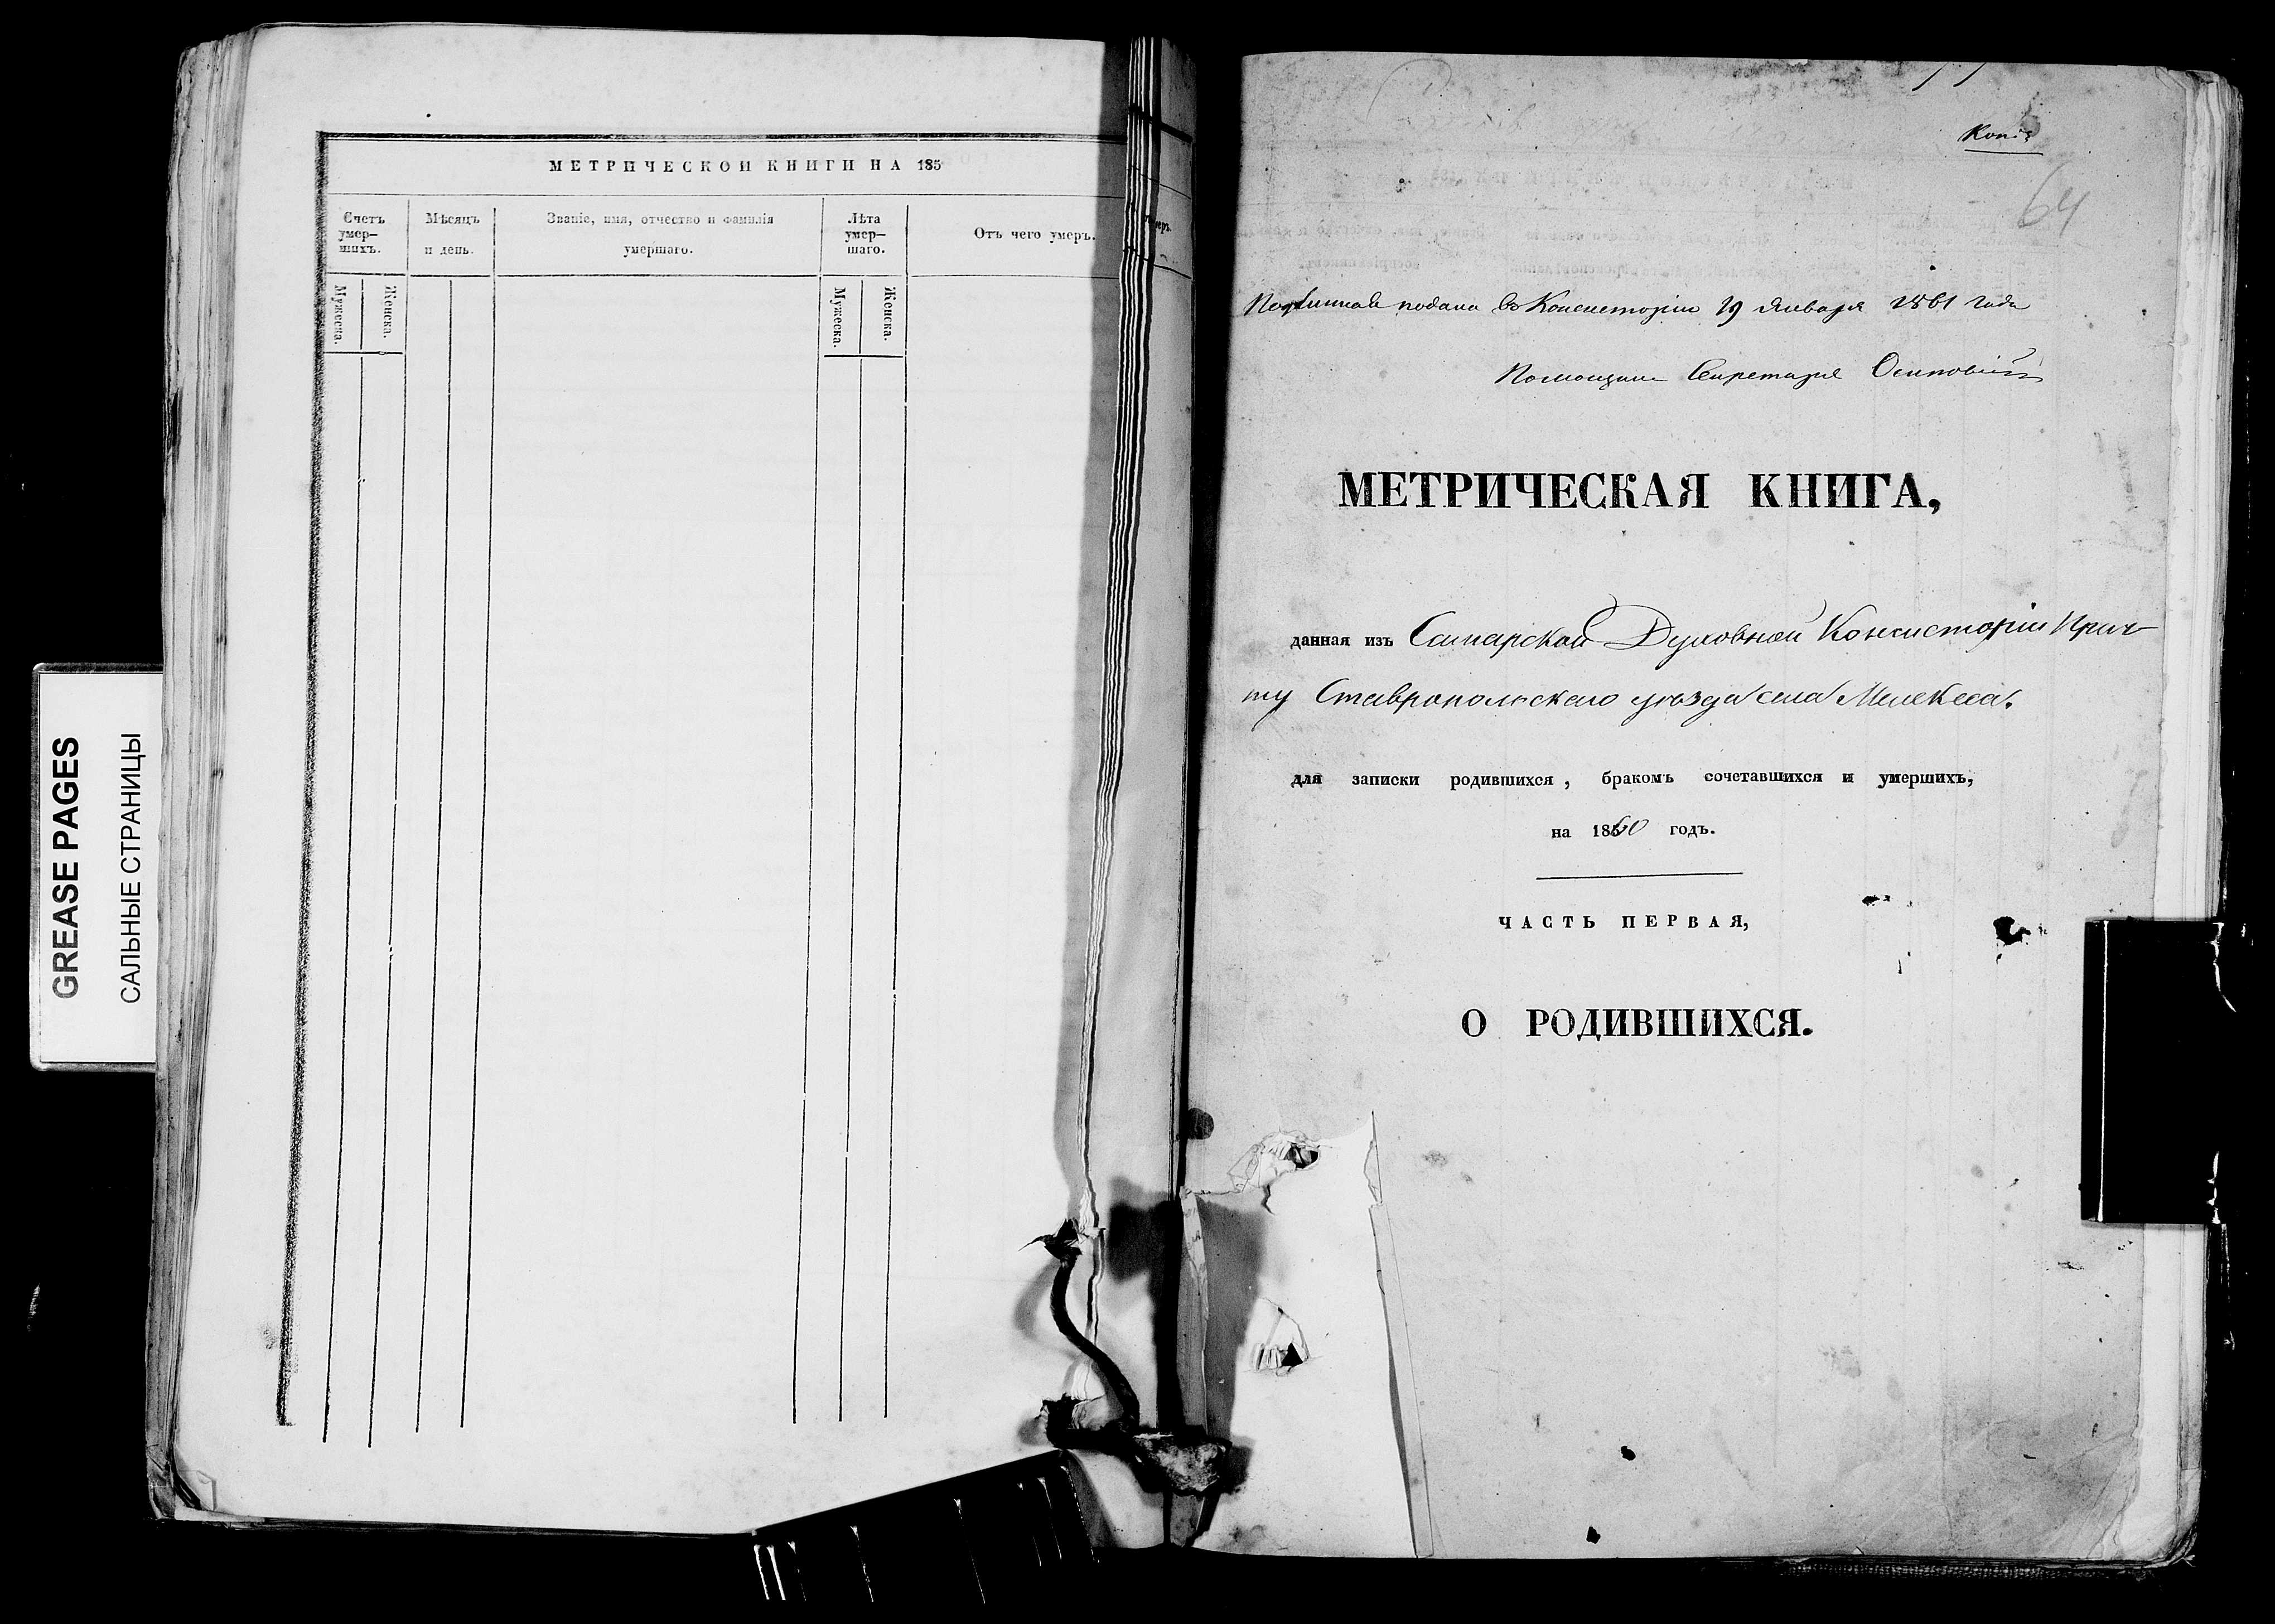 GREASE PAGES
САЛЬНЫЕ СТРАНИЦЫ
МЕТРИЧЕСКОЙ КНИГИ НА 185
Счетъ умер-
шихъ.
Мѣсяцъ
и день.
Званіе, имя, отчество и фамилія
умершаго.
Лѣта
умер-
шаго.
Отъ чего умеръ.
Мужеска.
Женска.
Мужеска.
Женска.
Копія
64
Подлинная подана въ Консисторію 19 Января 1861 года
Помощникъ Секретаря
МЕТРИЧЕСКАЯ КНИГА,
данная изъ Самарской Духовной Консисторіи Прич-
ту Ставропольскаго уѣзда села Мелекеса.
для записки родившихся, бракомъ сочетавшихся и умершихъ,
на 1860 годъ.
ЧАСТЬ ПЕРВАЯ,
О РОДИВШИХСЯ.